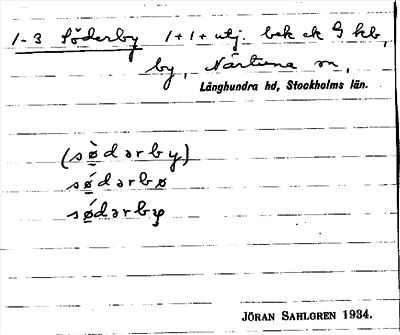 1-3 Söderby 1+1+utj. bek ck G kb,
by, Närtuna sn,
Långhundra hd, Stockholms län.
(sø̀dərby)
sǿdərbø
sǿdərby
JÖRAN SAHLGREN 1934.